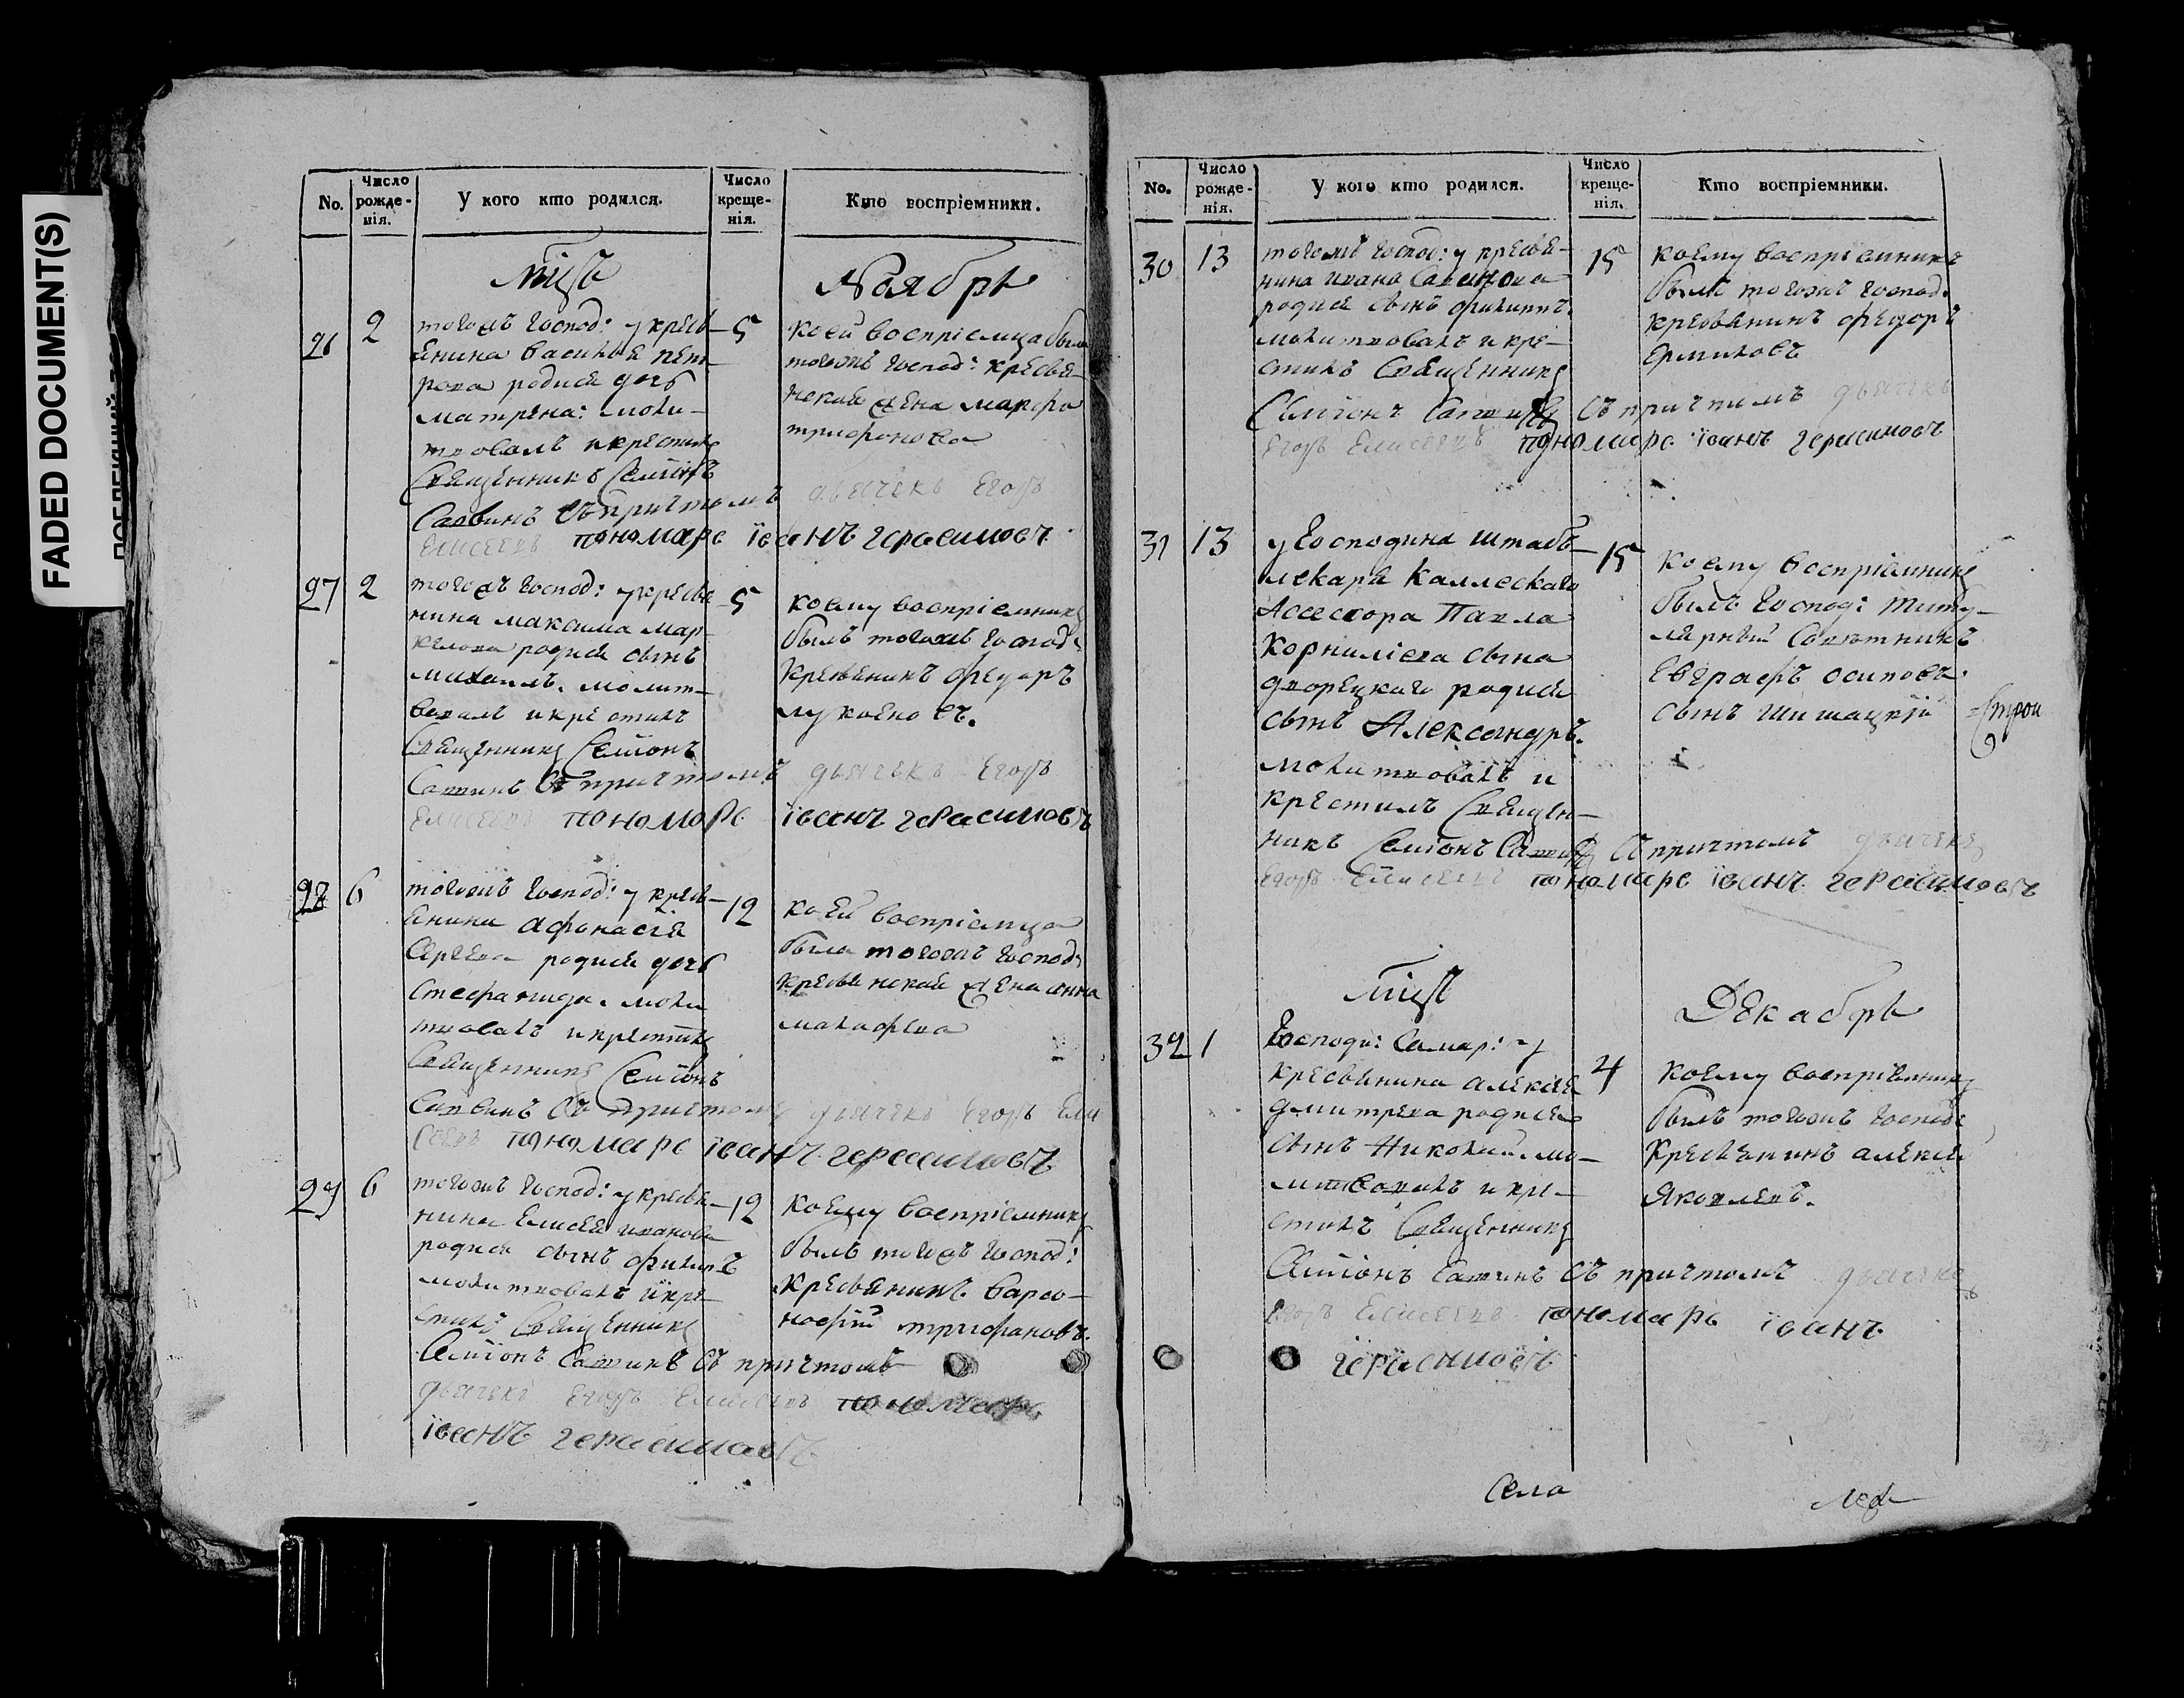 FADED DOCUMENT(S)
No.
Число рожде-нія.
У кого кто родился.
Число креще-нія.
Кто воспріемники.
мцъ
Ноябрь
26
2
тогожъ господ: у кресть-
янина василья пет-
рова родися дочь
матрена: моли-
твовалъ и крестилъ
Священникъ Семіонъ
Саввинъ съ причтомъ дьячекъ Егоръ
Елисеевъ пономарь іванъ герасимовъ
5
коей воспріемца была
тогожъ господ: крестья-
нская жена марфа
трифонова
27
2
тогожъ господ: у крестья
нина максима мар-
келова родися сынъ
михаилъ. молит-
вовалъ и крестилъ
Священникъ Семіонъ
Саввинъ съ причтомъ дьячекъ Егоръ
Елисеевъ пономарь іванъ герасимовъ
5
коему воспріемникъ
былъ тогожъ господ:
крестьянинъ федоръ
лукояновъ.
28
6
тогожъ господ: у кресть-
янина афонасія
Сергеева родися дочь
Стефанида. моли
твовалъ и крестилъ
Священникъ Семіонъ
Саввинъ съ причтомъ дьячекъ Егоръ Ели
сеевъ пономарь іванъ герасимовъ
12
коей воспріемца
была тогожъ господ:
крестьянская жена анна
малафеева
29
6
тогожъ господ: у крестья-
нина Елисея иванова
родися сынъ филипъ
молитвовалъ и кре-
стилъ Священникъ
Семіонъ Саввинъ съ причтомъ
дьячекъ Егоръ Елисеевъ пономарь
іванъ герасимовъ
12
коему воспріемникъ
былъ тогожъ господ:
крестьянинъ варсо-
нофій трифоновъ.
No.
Число рожде-нія.
У кого кто родился.
Число креще-нія.
Кто воспріемники.
30
13
тогожъ господ: у крестья-
нина ивана
родися сынъ филиппъ.
молитвовалъ и кре-
стилъ Священникъ
Семіонъ Саввинъ съ причтомъ дьячекъ
Егоръ Елисеевъ пономарь іванъ герасимовъ
15
коему воспріемникъ
былъ тогожъ господ:
крестьянинъ федоръ
ермиловъ
31
13
у Господина штабъ-
лекаря Каллескаго
Ассессора Павла
Корниліева сына
дворецкаго родися
сынъ Александръ.
молитвовалъ и
крестилъ Священ-
никъ Семіонъ Саввинъ съ причтомъ дьячекъ
Егоръ Елисеевъ пономарь іванъ герасимовъ
15
коему воспріемникъ
былъ господ: титу-
лярный Советникъ
Евграфъ осиповъ
сынъ Шишацкій
мцъ
Декабрь
32
1
Господи: Самар: у
крестьянина алексея
дмитрева родися
сынъ Николай. мо-
литвовалъ и кре-
стилъ Священникъ
Семіонъ Саввинъ съ причтомъ дьячекъ
Егоръ Елисеевъ пономарь іванъ
герасимовъ
4
коему воспріемникъ
былъ тогожъ господ:
крестьянинъ алексей
Яковлевъ.
Села